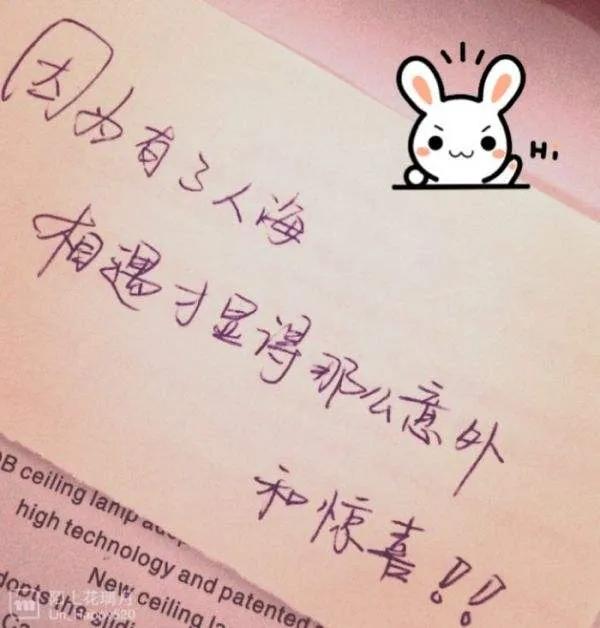 因为有了人海
Hi,
相遇才显得那么意外
和惊喜!!
OB ceiling lamp
high technology and patented
New ceiling la
dopts the slidi
陌上花璃月
Un_Happy520